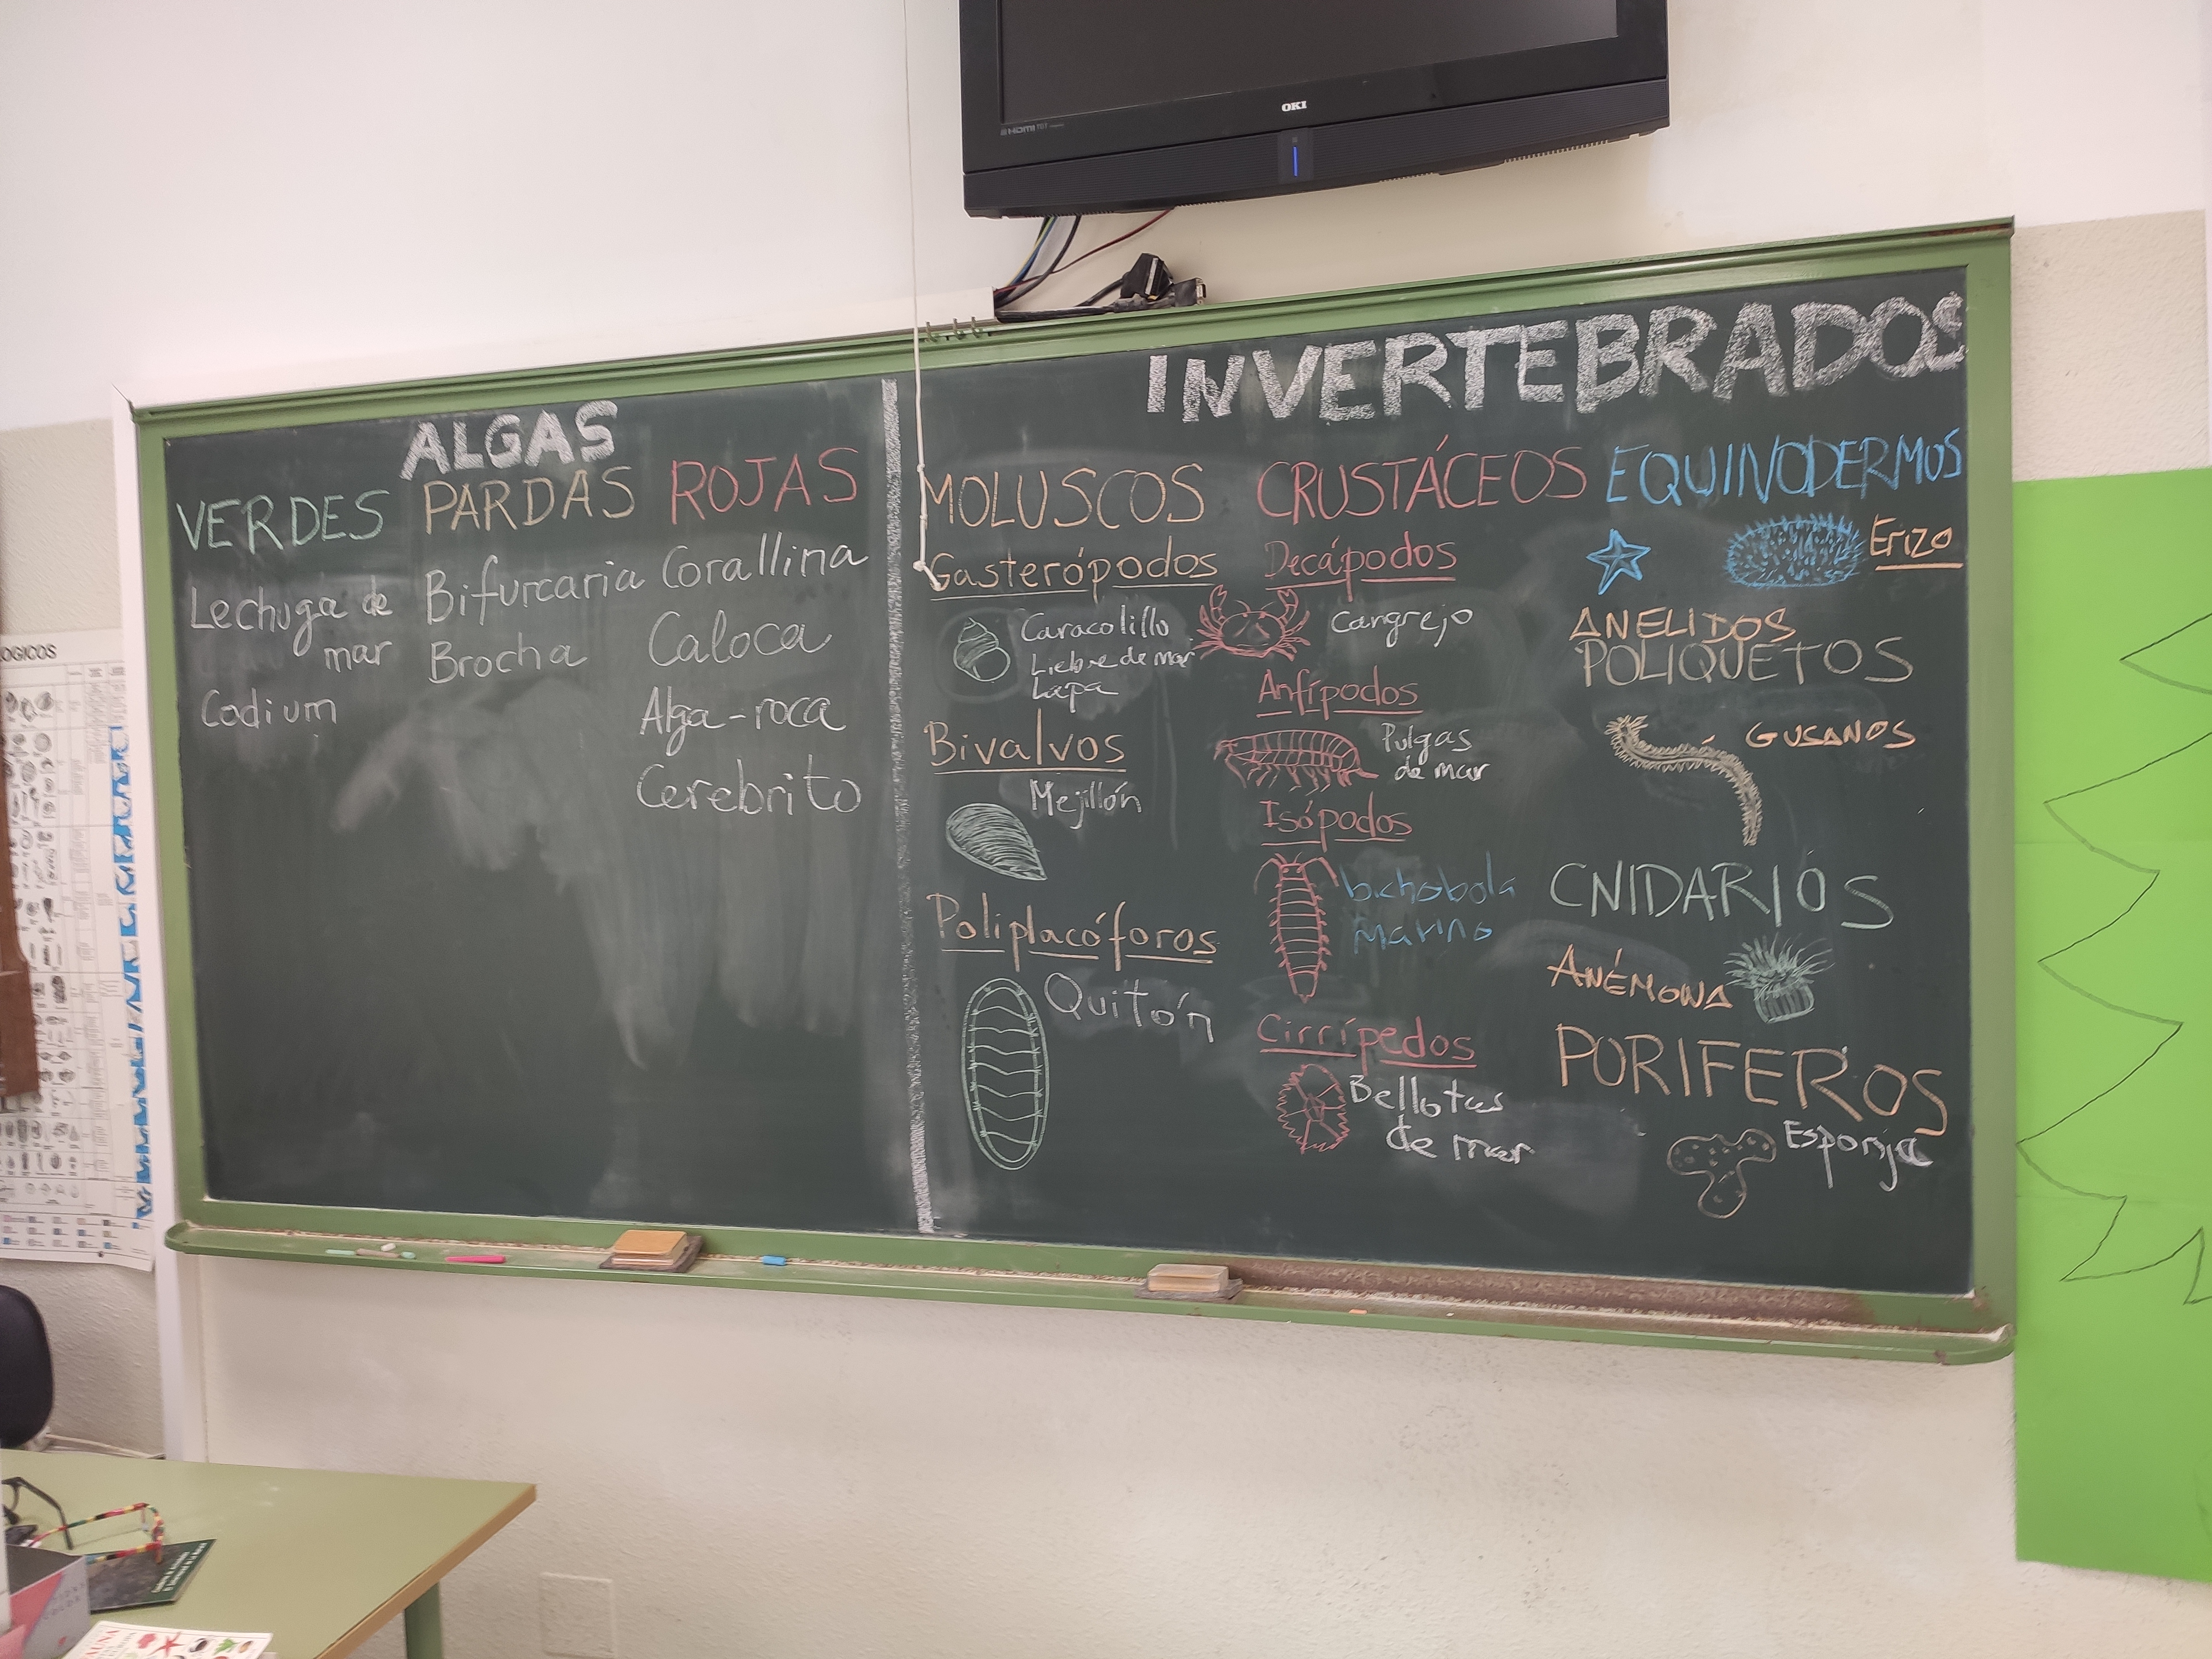 OKI
HDMI
ALGAS
VERDES
Lechuga de
mar
Codium
PARDAS
Bifurcaria
Brocha
ROJAS
Corallina
Caloca
Alga-roca
Cerebrito
INVERTEBRADOS
MOLUSCOS
Gasterópodos
Caracolillo
Liebre de mar
Lapa
Bivalvos
Mejillón
Poliplacóforos
Quitón
CRUSTÁCEOS
Decápodos
Cangrejo
Anfípodos
Pulgas
de mar
Isópodos
bichobola
marino
Cirrípedos
Bellotas
de mar
EQUINODERMOS
Erizo
ANELIDOS
POLIQUETOS
GUSANOS
CNIDARIOS
ANÉMONA
PORIFEROS
Esponja